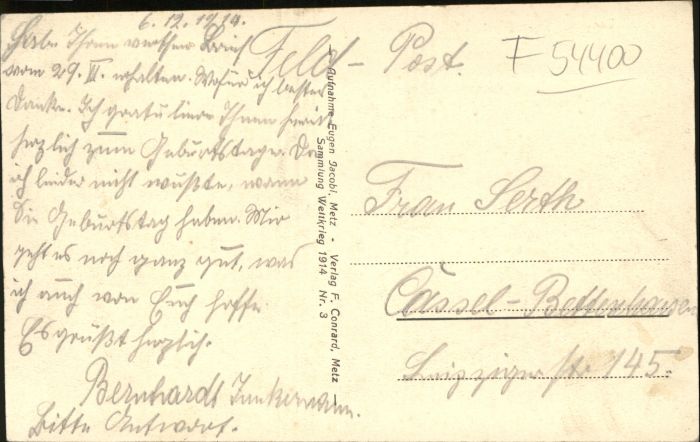 6.12.1914.
Habe Ihren werthen Brief
vom 29. XI. erhalten. Wofür ich besten
Danke. Ich gratuliere Ihnen hiermit
herzlich zum Geburtstage. Da
ich leider nicht wußte, wann
Sie Geburtstag haben. Mir
geht es noch ganz gut, was
ich auch von Euch hoffe.
Es grüßt herzlich.
Bernhardt Junkermann.
Bitte Antwort.
Aufnahme Eugen Jacobi, Metz - Verlag F. Conrard, Metz
Sammlung Weltkrieg 1914 Nr. 3
Feld - Post.
F 54400
Frau Serth
Cassel-Bettenhausen
Leipziger Str 145.